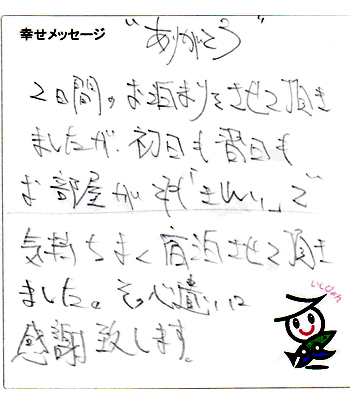 幸せメッセージ
"ありがとう"
2日間。お泊まりをさせて頂き
ましたが、初日も翌日も
お部屋が「きれい」で
気持ちよく宿泊させて頂き
ました。その心遣いに
感謝致します。